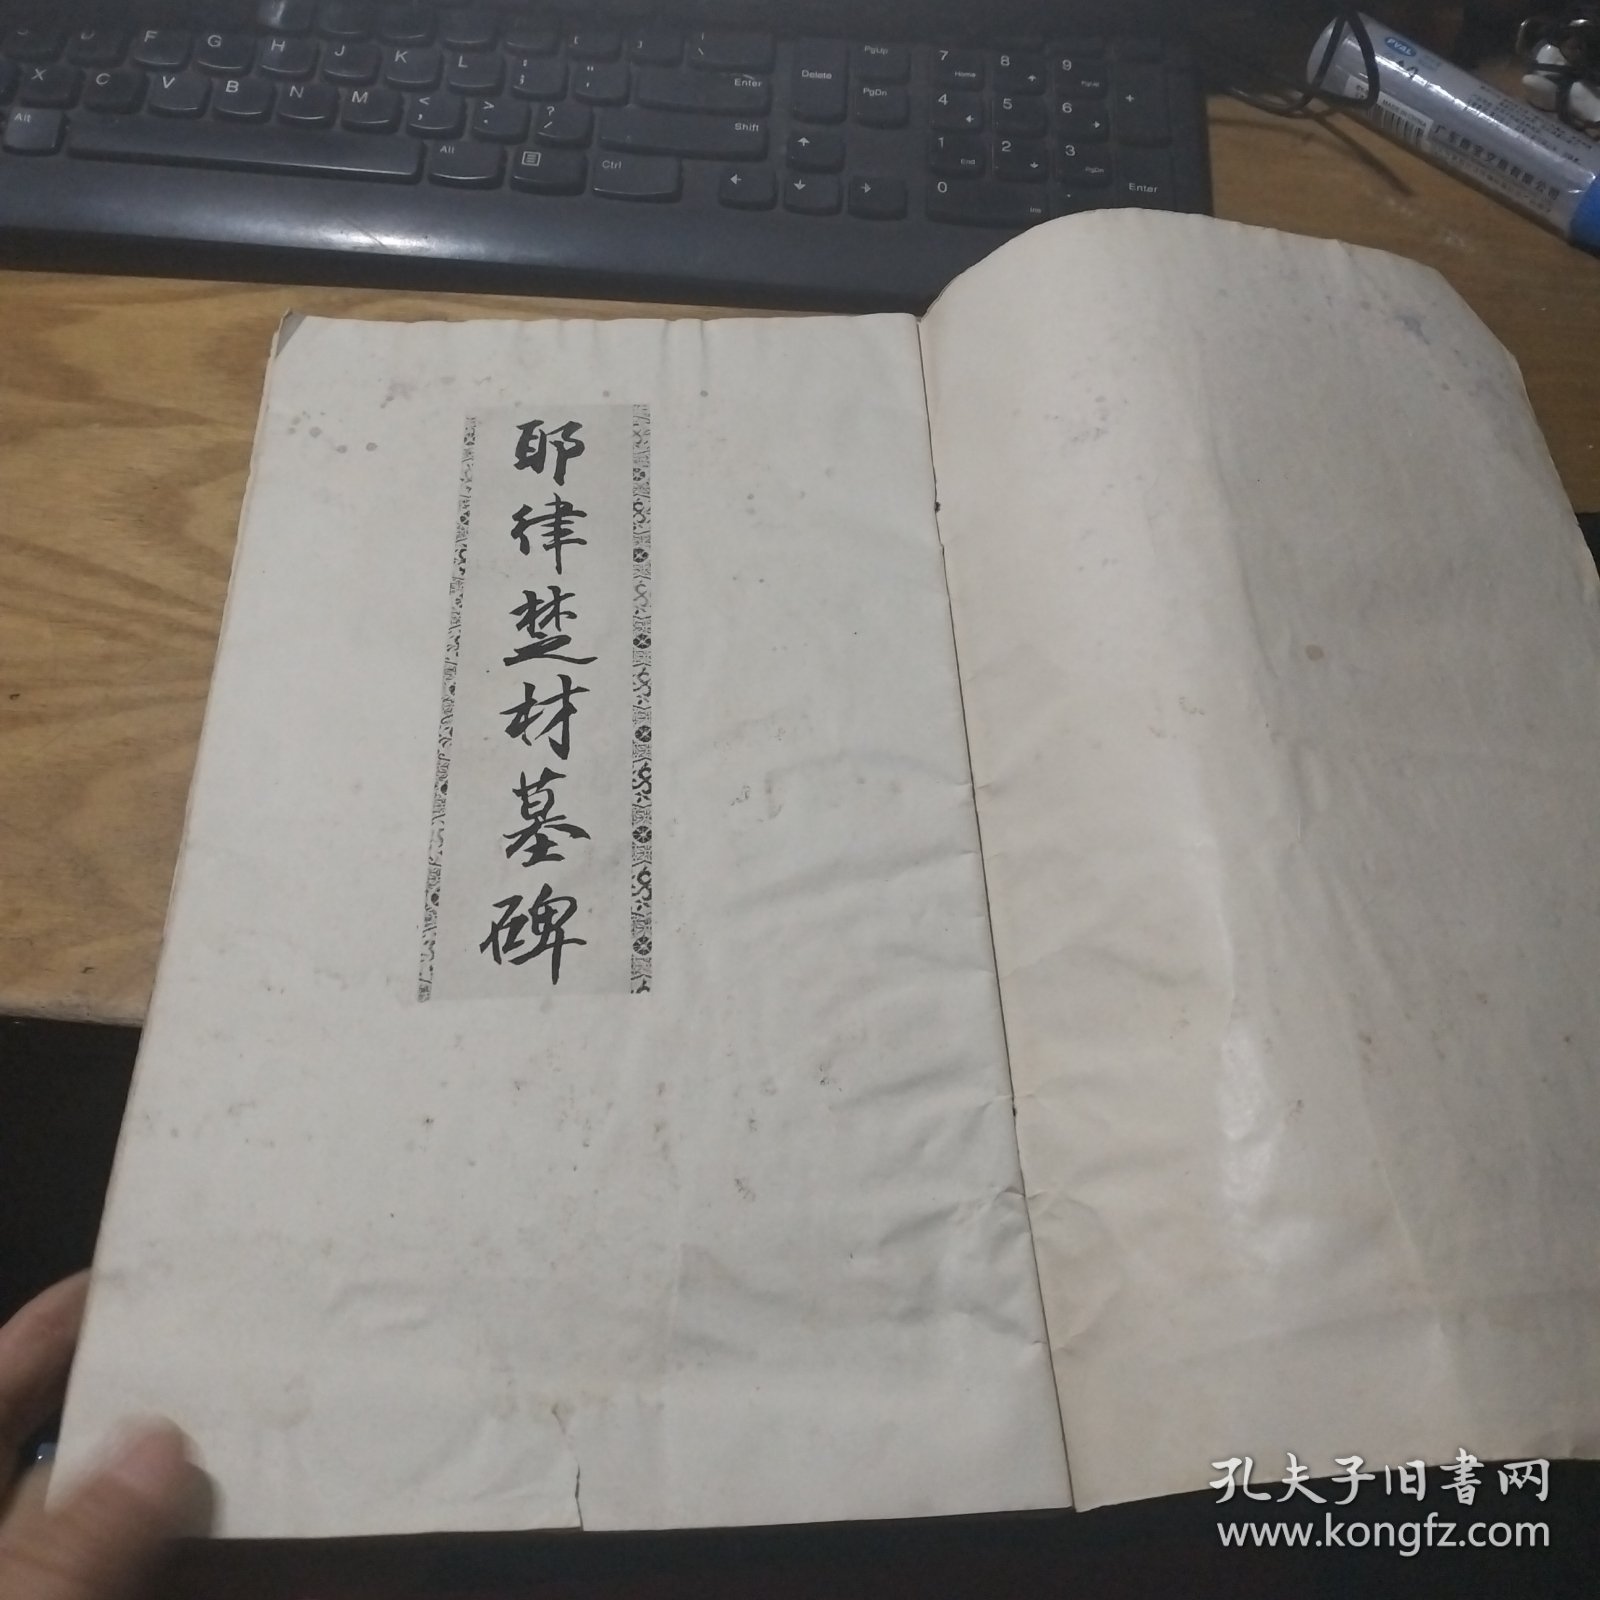 耶律楚材墓碑
F G H J K L
X C V B N M
Enter
Shift
Alt
Alt
Ctrl
Delete
PgUp
PgDn
7 Home
8
9 PgUp
+
4
5
6
1 End
2
3 PgDn
0 Ins
.
Enter
PVAL
孔夫子旧書网
www.kongfz.com